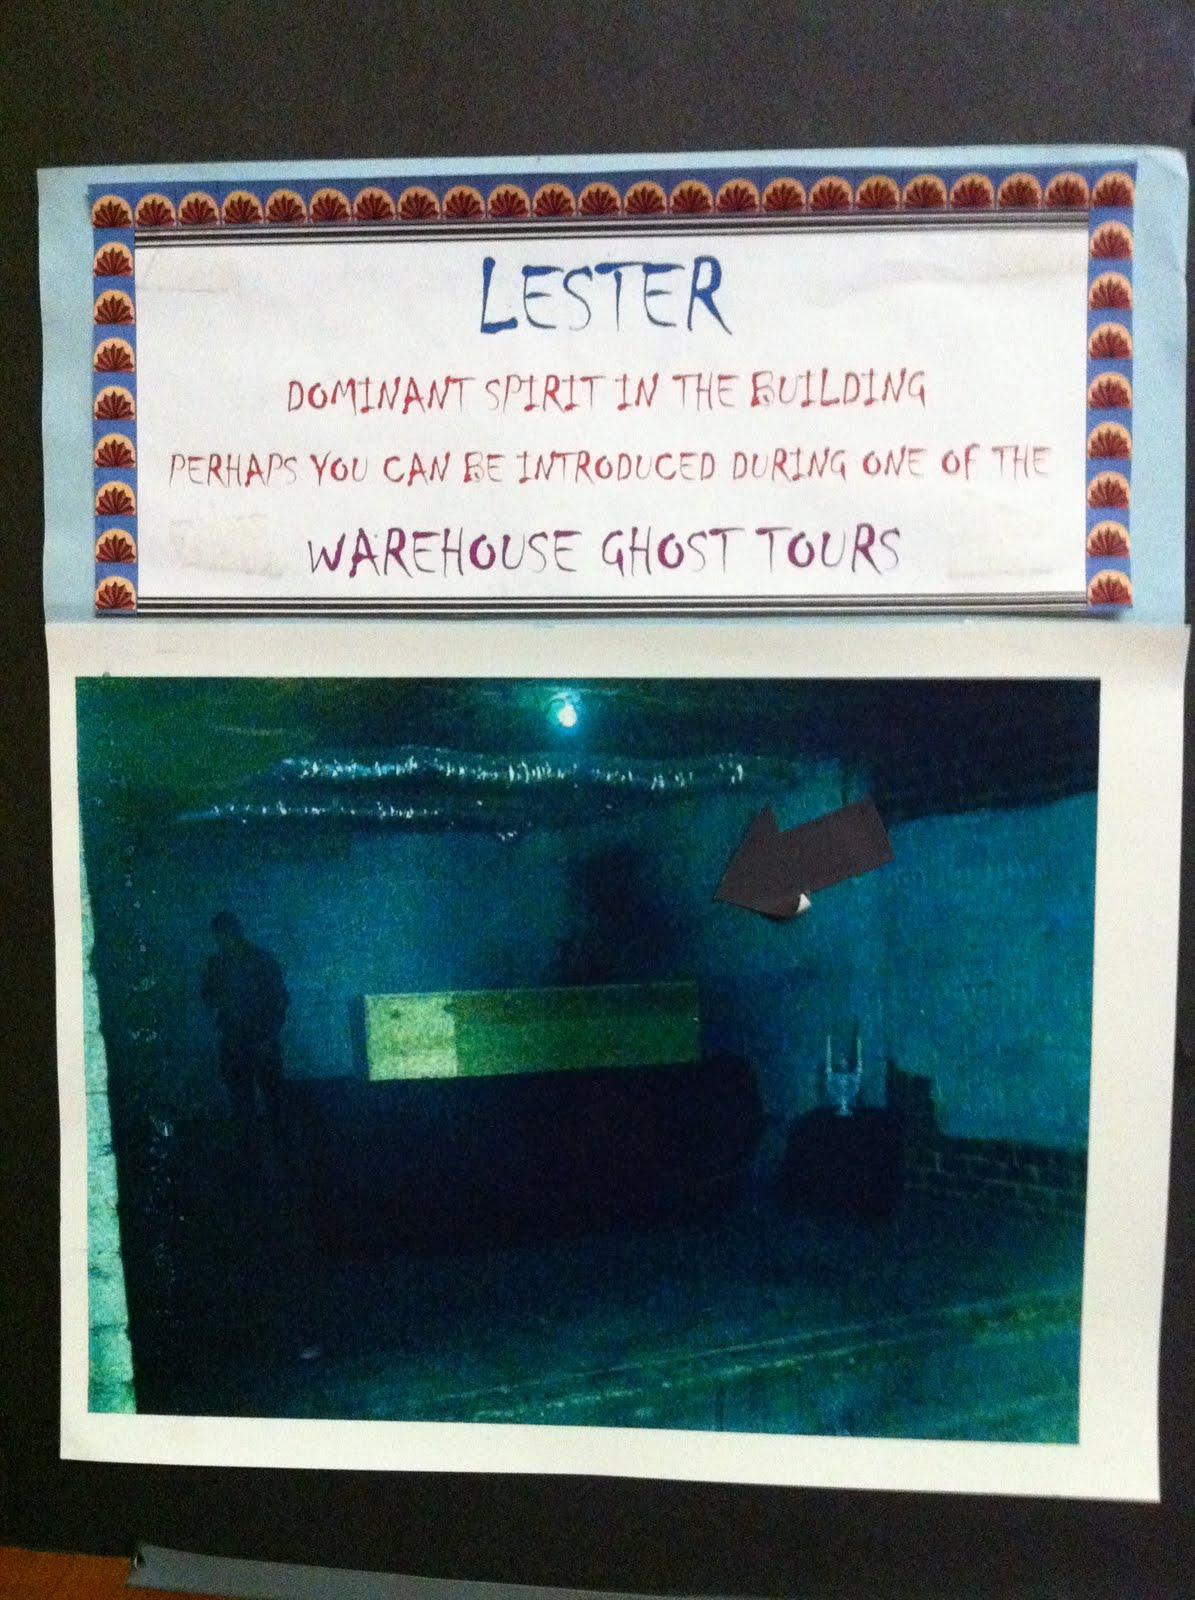 LESTER
DOMINANT SPIRIT IN THE BUILDING
PERHAPS YOU CAN BE INTRODUCED DURING ONE OF THE
WAREHOUSE GHOST TOURS